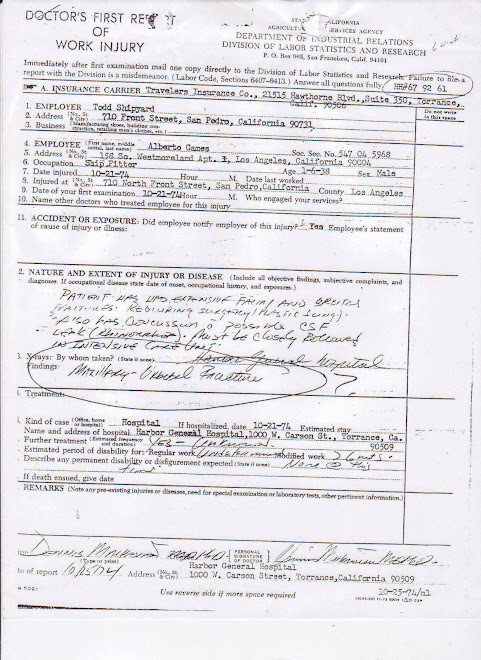 DOCTOR'S FIRST REPORT
OF
WORK INJURY
STATE OF CALIFORNIA
AGRICULTURE SERVICES AGENCY
DEPARTMENT OF INDUSTRIAL RELATIONS
DIVISION OF LABOR STATISTICS AND RESEARCH
P. O. Box 965, San Francisco, Calif. 94101
Immediately after first examination mail one copy directly to the Division of Labor Statistics and Research. Failure to file a
report with the Division is a misdemeanor. (Labor Code, Sections 6407-6413.) Answer all questions fully.
HH#67 92 61
A. INSURANCE CARRIER Travelers Insurance Co., 21515 Hawthorne Blvd., Suite 350, Torrance,
Calif. 90506
Do not write in this space
1. EMPLOYER Todd Shipyard
2. Address (No., St. & City) 710 Front Street, San Pedro, California 90731
3. Business (Manufacturing shoes, building construction, retailing men's clothes, etc.)
4. EMPLOYEE (First name, middle initial, last name) Alberto Games Soc. Sec. No. 547 04 5968
5. Address (No., St. & City) 158 So. Westmoreland Apt. Los Angeles, California 90004
6. Occupation Ship Fitter Age 1-6-38 Sex Male
7. Date injured 10-21-74 Hour M. Date last worked
8. Injured at (No., St. & City) 710 North Front Street, San Pedro, California County Los Angeles
9. Date of your first examination 10-21-74 Hour M. Who engaged your services?
10. Name other doctors who treated employee for this injury
11. ACCIDENT OR EXPOSURE: Did employee notify employer of this injury? Yes Employee's statement
of cause of injury or illness:
2. NATURE AND EXTENT OF INJURY OR DISEASE (Include all objective findings, subjective complaints, and
diagnoses. If occupational disease state date of onset, occupational history, and exposures.)
PATIENT HAS HAD EXTENSIVE FACIAL AND ORBITAL
FRACTURES REQUIRING SURGERY (PLASTIC SURG).
ALSO HAS CONCUSSION & POSSIBLE CSF
LEAK (RHINORRHEA). MUST BE CLOSELY FOLLOWED
IN INTENSIVE CARE UNIT.
3. X-rays: By whom taken? (State if none) Harbor General Hospital
Findings: Maxillary - Orbital Fracture
Treatment:
Kind of case (Office, home or hospital) Hospital If hospitalized, date 10-21-74 Estimated stay
Name and address of hospital Harbor General Hospital, 1000 W. Carson St., Torrance, Ca.
90509
Further treatment (Estimated frequency and duration) Yes - Unknown
Estimated period of disability for: Regular work Undetermined Modified work
Describe any permanent disability or disfigurement expected (State if none) None @ this
time
If death ensued, give date
REMARKS (Note any pre-existing injuries or diseases, need for special examination or laboratory tests, other pertinent information.)
Dennis
(Type or print)
PERSONAL SIGNATURE OF DOCTOR
Harbor General Hospital
of report 10/25/74 Address (No., St. & City) 1000 W. Carson Street, Torrance, California 90509
5021
Use reverse side if more space required
10-25-74/nl